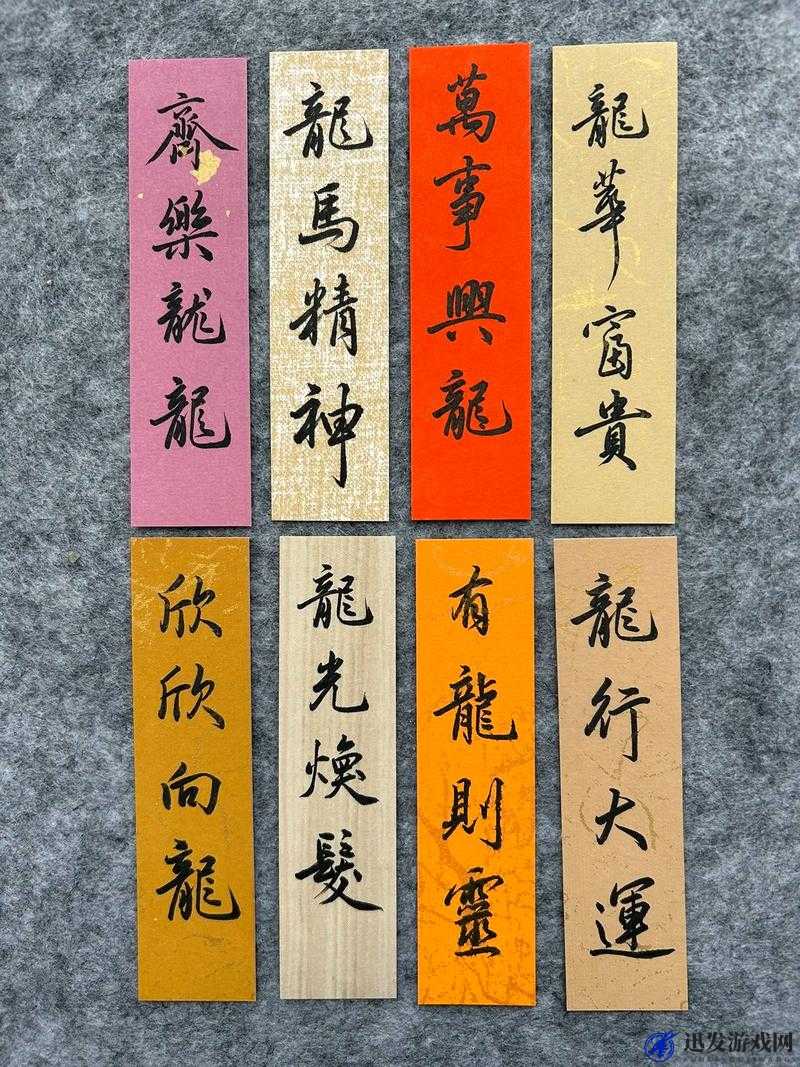 齊樂龍龍
龍馬精神
萬事興龍
龍華富貴
欣欣向龍
龍光煥髮
有龍則靈
龍行大運
迅发游戏网